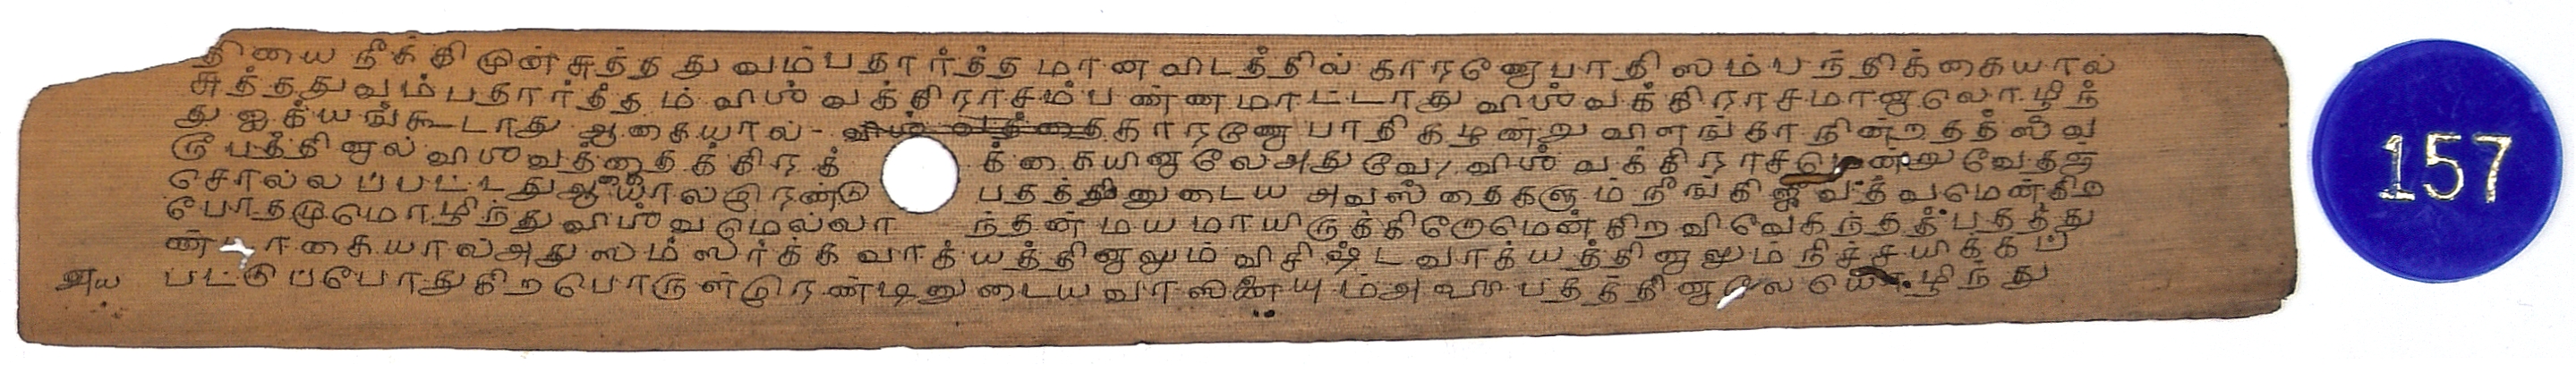 தியை நீக்கி முன் சுத்த துவம்பதார்த்தமானவிடத்தில் காரணோபாதி ஸம்பந்திக்கையால்
சுத்தத்துவம்பதார்த்தம் விஶ்வக்கிராசம்பண்ணமாட்டாது விஶ்வக்கிராசமானாலொழிந்
து ஐக்யங்கூடாது ஆகையால் - காரணோபாதி கழன்று விளங்காநின்ற தத் ஸ்வ
ரூபத்தினால் விஶ்வத்தைக்கிரக் க்கையினாலே அதுவே விஶ்வக்கிராசமென்று வேதஞ்
சொல்லப்பட்டது ஆகையால் இரண்டு பதத்தினுடைய அவஸ்தைகளும் நீங்கி ஜீவத்வமென்கிற
போதமுமொழிந்து விஶ்வமெல்லா ந்தன்மயமாயிருக்கிறோமென்கிற விவேகந்தத்பதத்து
ண் ாகையால் அது ஸம்ஸர்க்க வாக்யத்தினாலும் விசிஷ்ட வாக்யத்தினாலும் நிச்சயிக்கப்
அய பட்டுப்போதுகிற பொருள் இரண்டினுடைய வாஸனையும் அஹம்பதத்தினாலேயொழிந்து
157